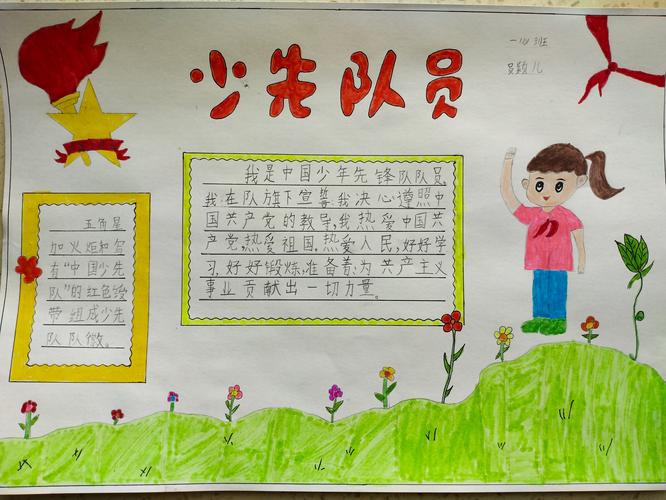 少先队员
一(4)班
员颖儿
五角星
加火炬和写
有“中国少先
队”的红色绶
带组成少先
队队徽。
我是中国少年先锋队队员,
我在队旗下宣誓我决心遵照中
国共产党的教导,我热爱中国共
产党热爱祖国,热爱人民,好好学
习,好好锻炼,准备着:为共产主义
事业贡献出一切力量。